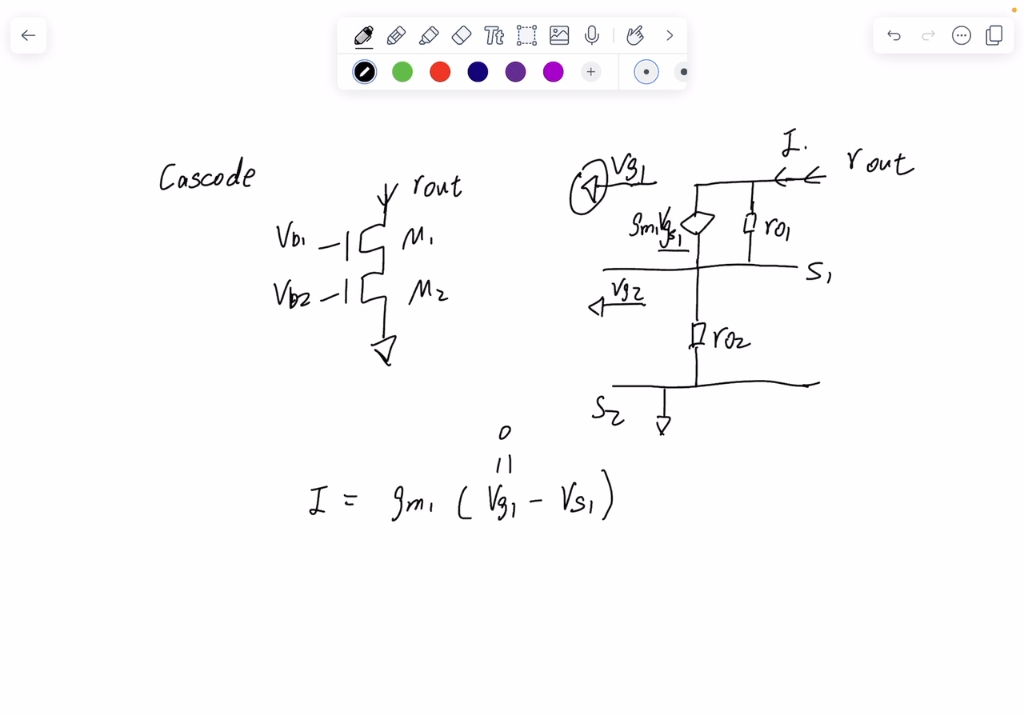 Tt
Cascode
rout
Vb1
M1
Vb2
M2
Vg1
I.
rout
gm1Vgs1
ro1
S1
Vg2
ro2
S2
0
||
I = gm1 ( Vg1 - Vs1 )